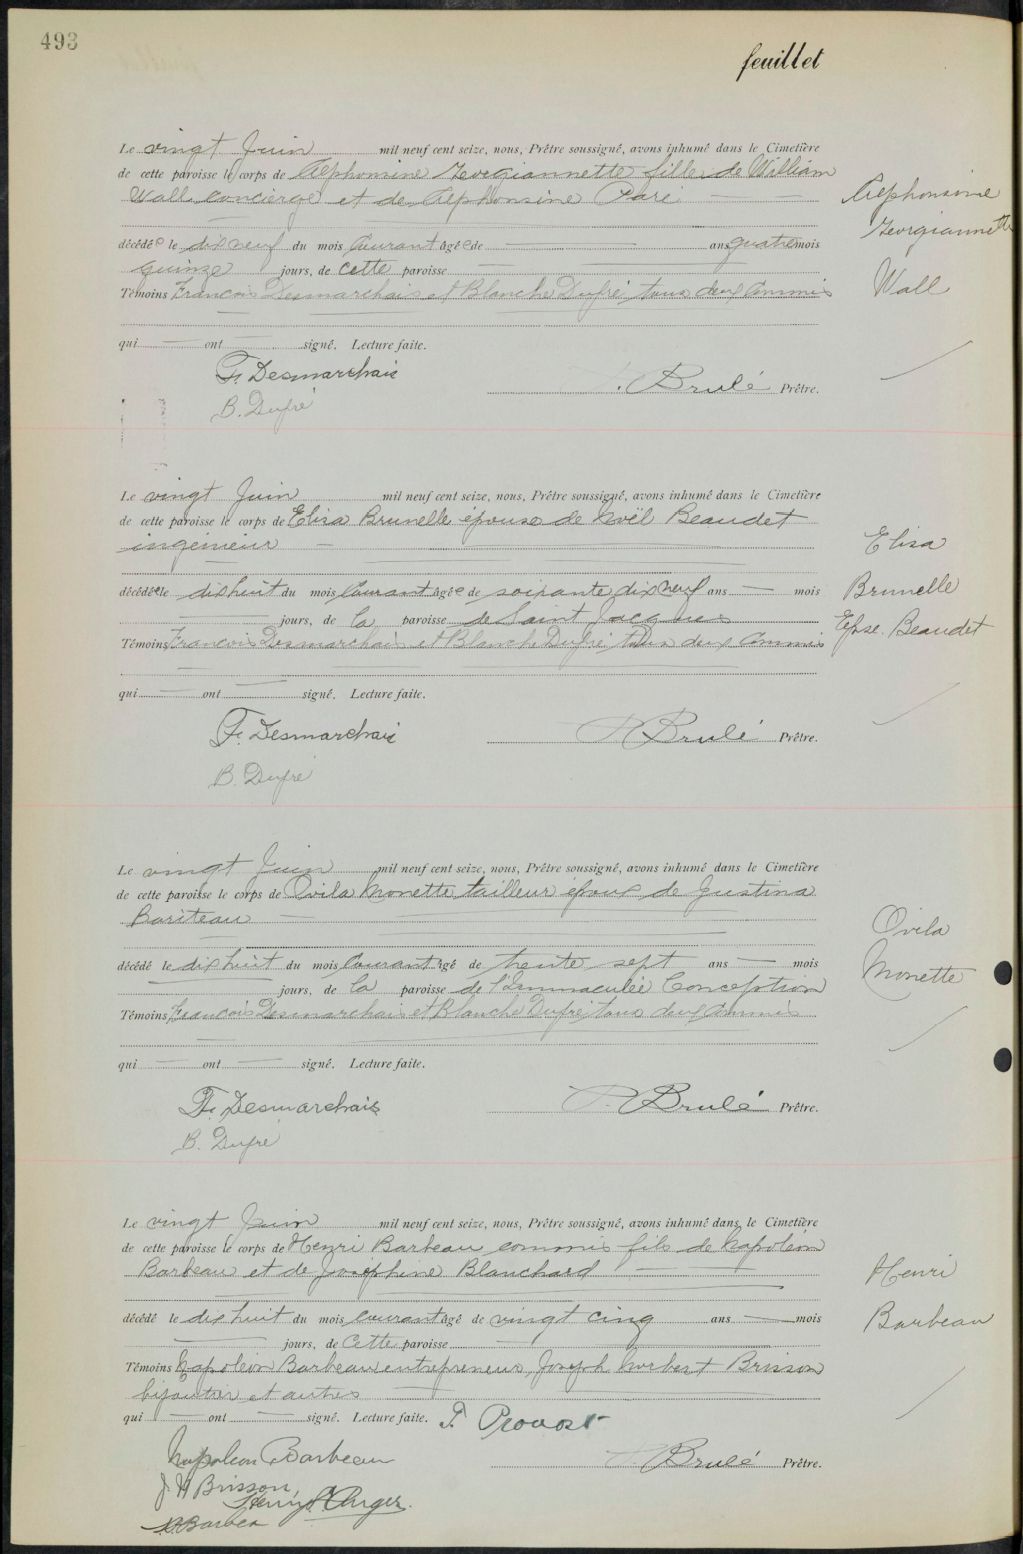 493
feuillet
Le vingt Juin mil neuf cent seize, nous, Prêtre soussigné, avons inhumé dans le Cimetière
de cette paroisse le corps de Alphonsine Georgiannette fille de William
Wall concierge et de Alphonsine Paré
Alphonsine
Georgiannette
Wall
décédée le dix neuf du mois Courant âgée de ans quatre mois
quinze jours, de cette paroisse
Témoins Francois Desmarchais et Blanche Dufré tous deux Commis
qui ont signé. Lecture faite.
F. Desmarchais
P. Brulé Prêtre.
B. Dufré
Le vingt Juin mil neuf cent seize, nous, Prêtre soussigné, avons inhumé dans le Cimetière
de cette paroisse le corps de Elisa Brunelle épouse de Noël Beaudet
ingénieur
Elisa
Brunelle
Epse. Beaudet
décédée le dix huit du mois Courant âgée de soixante dix neuf ans mois
jours, de la paroisse de Saint Jacques
Témoins Francois Desmarchais et Blanche Dufré tous deux Commis
qui ont signé. Lecture faite.
F. Desmarchais
P. Brulé Prêtre.
B. Dufré
Le vingt Juin mil neuf cent seize, nous, Prêtre soussigné, avons inhumé dans le Cimetière
de cette paroisse le corps de Ovila Monette tailleur époux de Justina
Bariteau
Ovila
Monette
décédé le dix huit du mois Courant âgé de trente sept ans mois
jours, de la paroisse de l'Immaculée Conception
Témoins Francois Desmarchais et Blanche Dufré tous deux Commis
qui ont signé. Lecture faite.
F. Desmarchais
P. Brulé Prêtre.
B. Dufré
Le vingt Juin mil neuf cent seize, nous, Prêtre soussigné, avons inhumé dans le Cimetière
de cette paroisse le corps de Henri Barbeau commis fils de Napoléon
Barbeau et de Joséphine Blanchard
Henri
Barbeau
décédé le dix huit du mois courant âgé de vingt cinq ans mois
jours, de cette paroisse
Témoins Napoléon Barbeau entrepreneur, Joseph Norbert Brisson
bijoutier et autres
qui ont signé. Lecture faite. F. Provost
Napoleon Barbeau
P. Brulé Prêtre.
J N Brisson,
Henri Auger.
Barbea